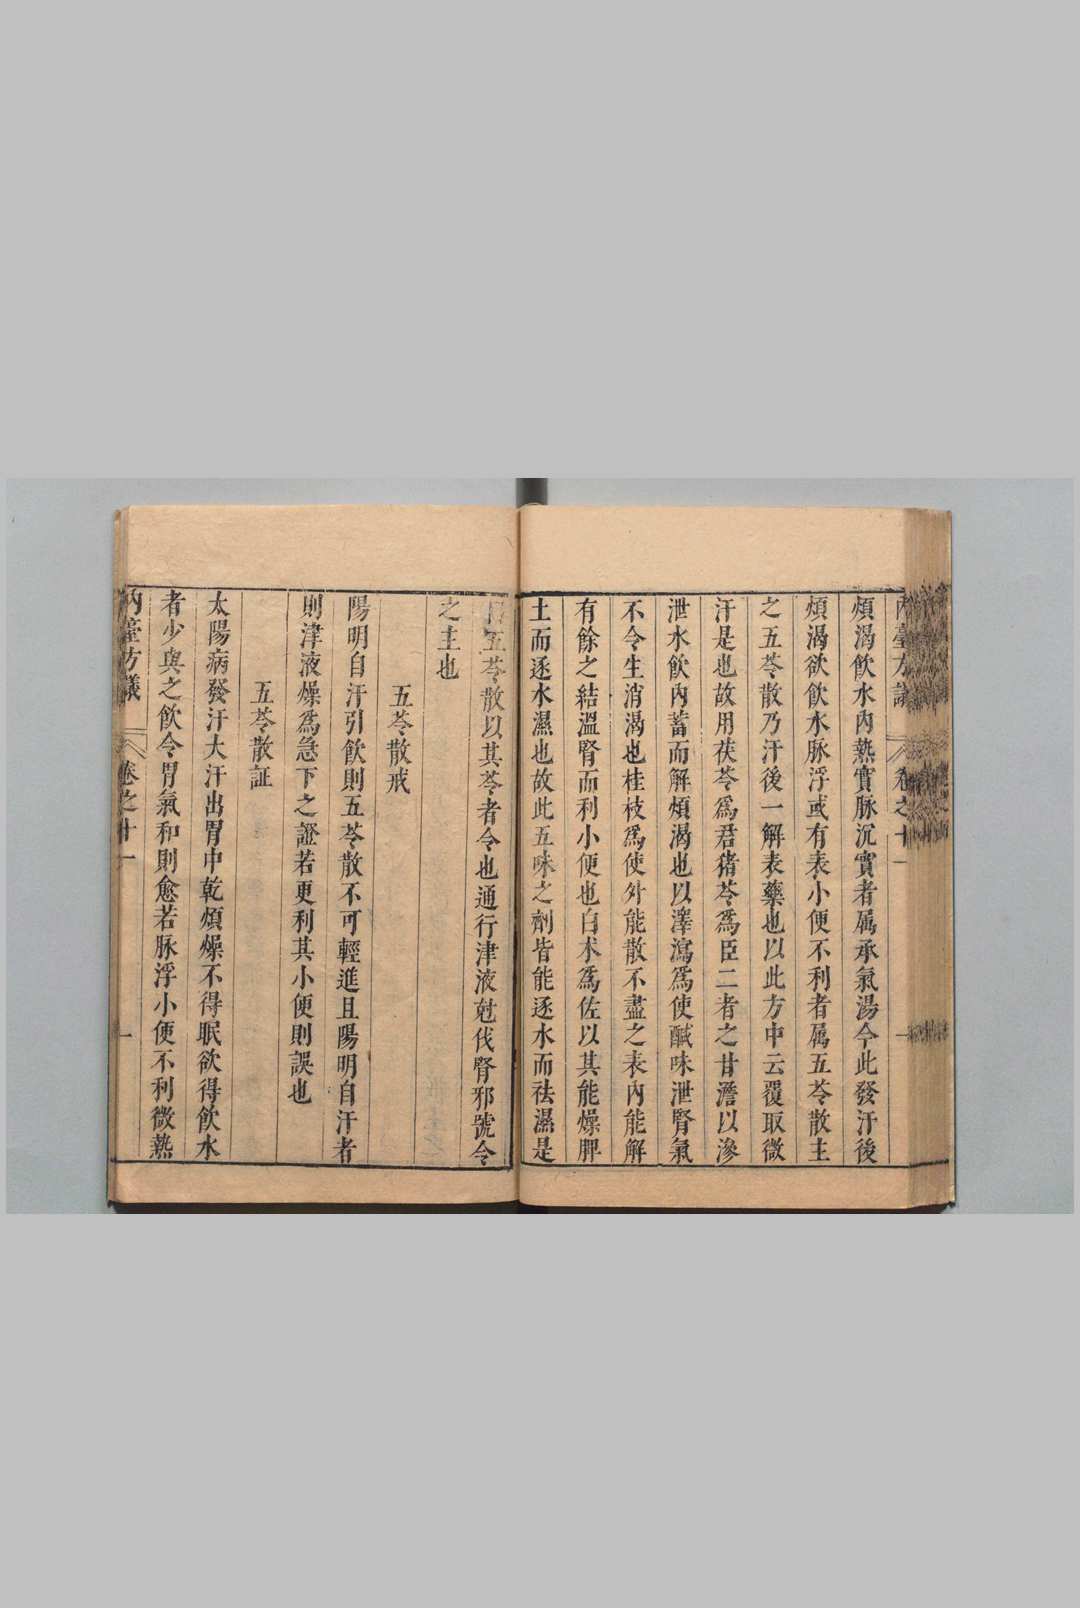 內臺方議 卷之十一 一
煩渴飲水內熱實脉沉實者属承氣湯今此發汗後
煩渴欲飲水脉浮或有表小便不利者属五苓散主
之五苓散乃汗後一解表藥也以此方中云覆取微
汗是也故用茯苓爲君猪苓爲臣二者之甘澹以滲
泄水飲內蓄而解煩渴也以澤瀉爲使醎味泄腎氣
不令生消渴也桂枝爲使外能散不盡之表內能解
有餘之結溫腎而利小便也白术爲佐以其能燥脾
土而逐水濕也故此五味之劑皆能逐水而祛濕是
五苓散以其苓者令也通行津液尅伐腎邪號令
之主也
五苓散戒
陽明自汗引飲則五苓散不可輕進且陽明自汗者
則津液燥爲急下之證若更利其小便則誤也
五苓散証
太陽病發汗大汗出胃中乾煩燥不得眠欲得飲水
者少與之飲令胃氣和則愈若脉浮小便不利微熱
內臺方議 卷之十一 一